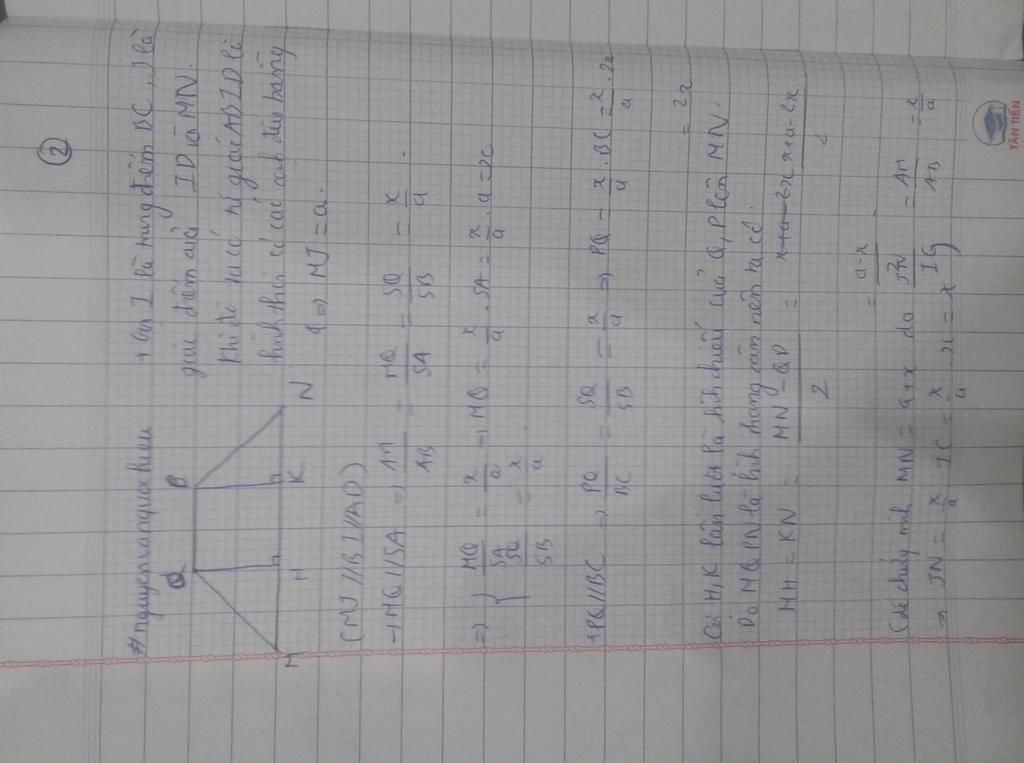 ②
#nguyentranquochuu
+ Gọi I là trung điểm BC, J là
giao điểm của ID và MN.
Khi đó ta có tứ giác ABID là
hình thoi có các cạnh đều bằng
a ⇒ MJ = a.
Q P
M H K N
(MJ // BI // AD)
→ MQ // SA ⇒ AM/AB = MQ/SA = SQ/SB = x/a.
⇒ { MQ/SA = x/a → MQ = x/a . SA = x/a . a = x
SQ/SB = x/a.
+ PQ // BC ⇒ PQ/BC = SQ/SB = x/a ⇒ PQ = x/a . BC = x/a . 2a
= 2x
Gọi H, K lần lượt là hình chiếu của Q, P lên MN.
Do MQPN là hình thang cân nên ta có.
MH = KN = (MN - QP)/2 = (x+a-2x)/2
= (a-x)/2
(dễ chứng minh MN = a+x do JN/IC = AM/AB = x/a
⇒ JN = x/a IC = x/a . a = x)
TÂN TIẾN